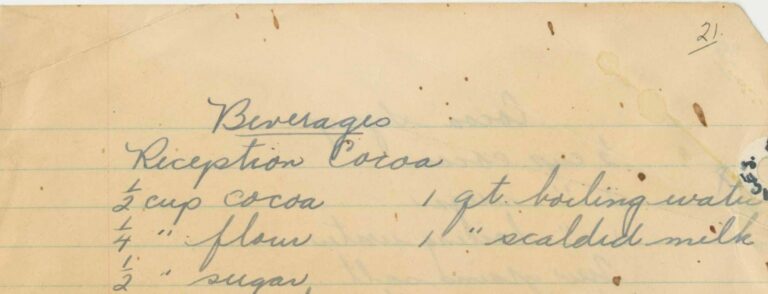 21.
Beverages
Reception Cocoa
1/2 cup cocoa 1 qt. boiling water
1/4 " flour 1 " scalded milk
1/2 " sugar,